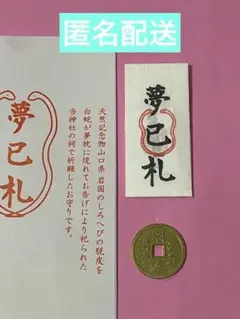 匿名配送
夢巳札
天然記念物山口県岩国のしろへびの脱皮を
白蛇が夢枕に現れてお告げにより祀られた
当神社の祠で祈願したお守りです。
夢巳札